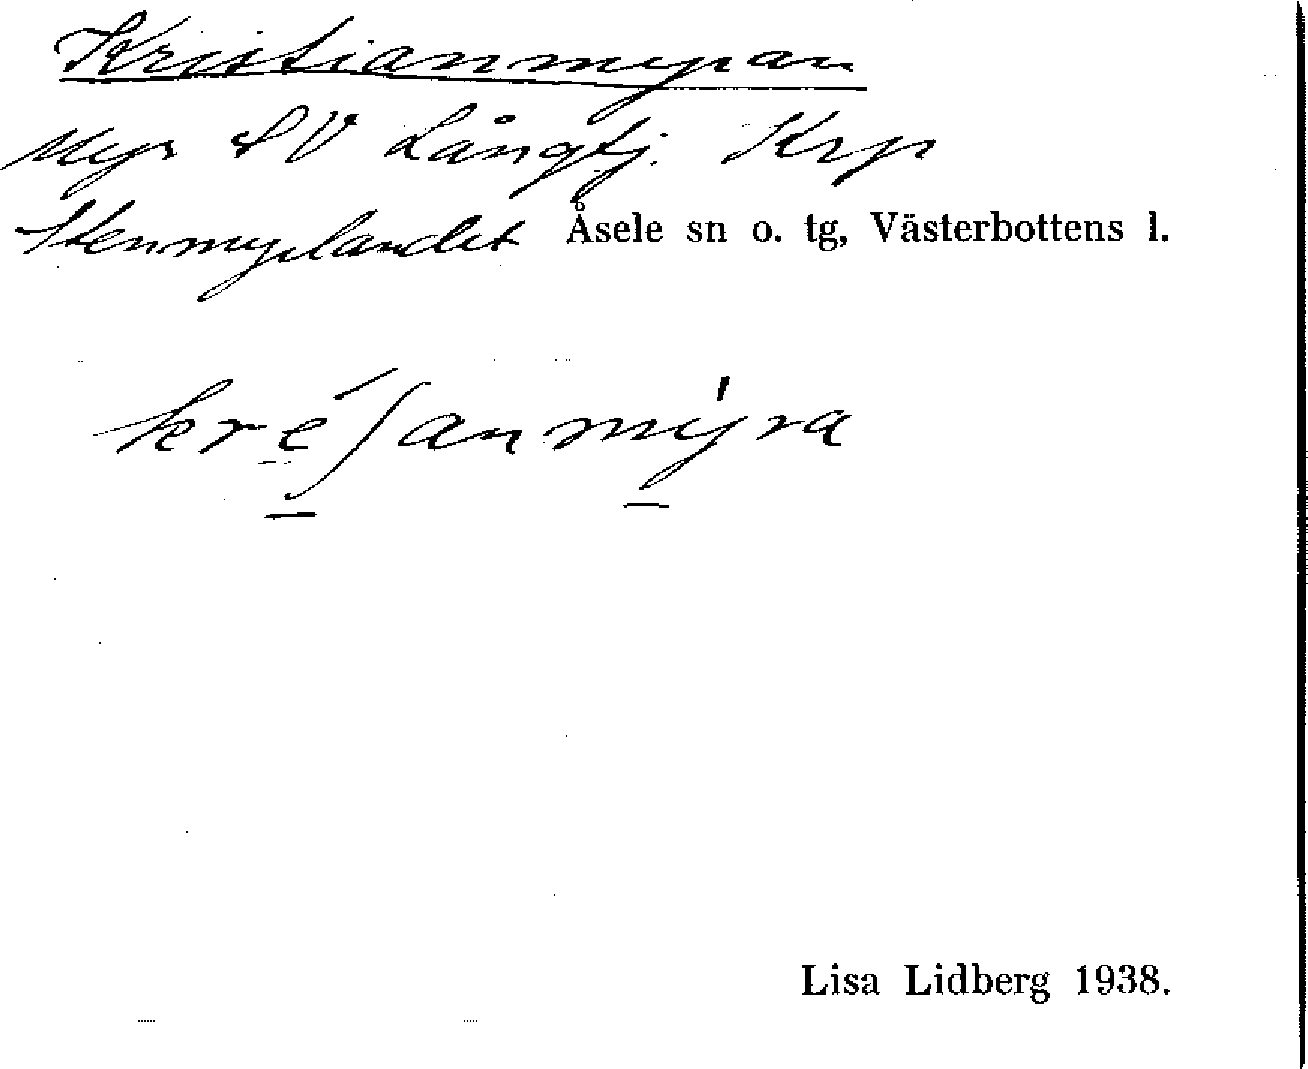 Kristianmyran
Myr SV Långtj. Krp
Stenmyrlandet Åsele sn o. tg, Västerbottens l.
kréʃanmýra
Lisa Lidberg 1938.